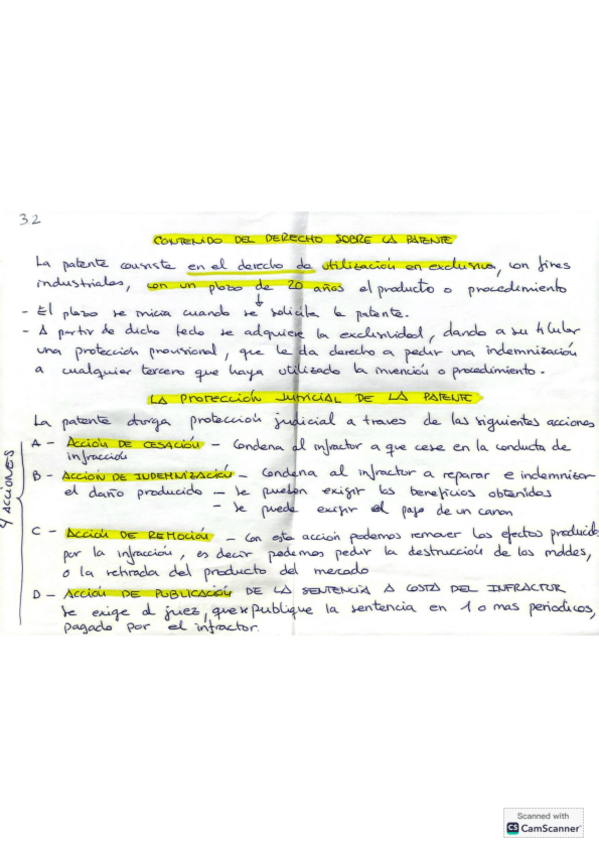 3.2
CONTENIDO DEL DERECHO SOBRE LA PATENTE
La patente consiste en el derecho de utilización en exclusiva, con fines
industriales, con un plazo de 20 años el producto o procedimiento
- El plazo se inicia cuando se solicita la patente.
- A partir de dicho fecho se adquiere la exclusividad, dando a su titular
una protección provisional, que le da derecho a pedir una indemnización
a cualquier tercero que haya utilizado la invención o procedimiento.
LA PROTECCIÓN JUDICIAL DE LA PATENTE
La patente otorga protección judicial a traves de las siguientes acciones
4 ACCIONES
A - ACCIÓN DE CESACIÓN - Condena al infractor a que cese en la conducta de
infracción
B - ACCIÓN DE INDEMNIZACIÓN - Condena al infractor a reparar e indemnizar
el daño producido - Se pueden exigir los beneficios obtenidos
- Se puede exigir el pago de un canon
C - ACCIÓN DE REMOCIÓN - Con esta acción podemos remover los efectos producidos
por la infracción, es decir podemos pedir la destrucción de los moldes,
o la retirada del producto del mercado
D - ACCIÓN DE PUBLICACIÓN DE LA SENTENCIA A COSTA DEL INFRACTOR
Se exige al juez, que publique la sentencia en 1 o mas periodicos,
pagado por el infractor.
Scanned with
CS CamScanner